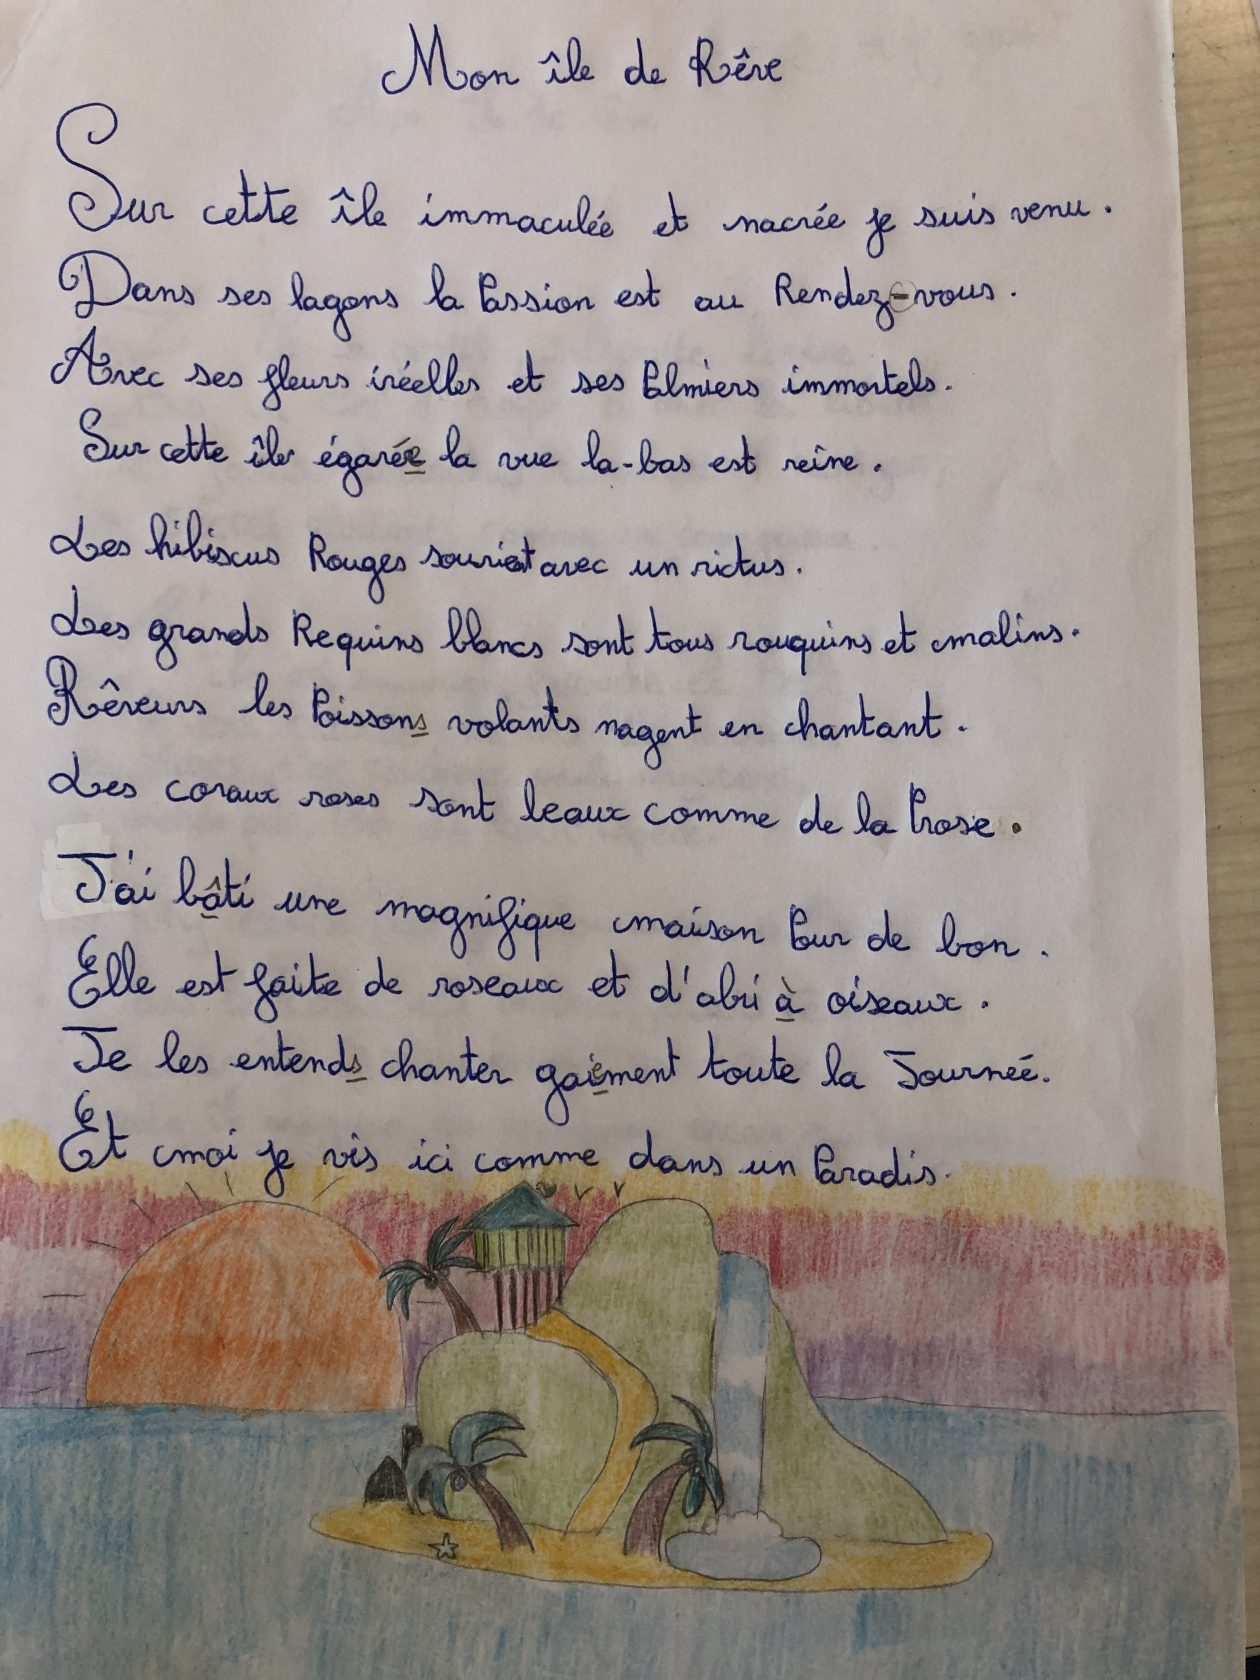 Mon île de Rêve
Sur cette île immaculée et nacrée je suis venu.
Dans ses lagons la Passion est au Rendez-vous.
Avec ses fleurs iréelles et ses Palmiers immortels.
Sur cette île égarée la vue la-bas est reine.
Les hibiscus Rouges souriet avec un rictus.
Les grands Requins blancs sont tous rouquins et malins.
Rêveurs les Poissons volants nagent en chantant.
Les coraux roses sont beaux comme de la Prose.
J'ai bâti une magnifique maison Pour de bon.
Elle est faite de roseaux et d'abri à oiseaux.
Je les entends chanter gaiement toute la Journée.
Et moi je vis ici comme dans un Paradis.